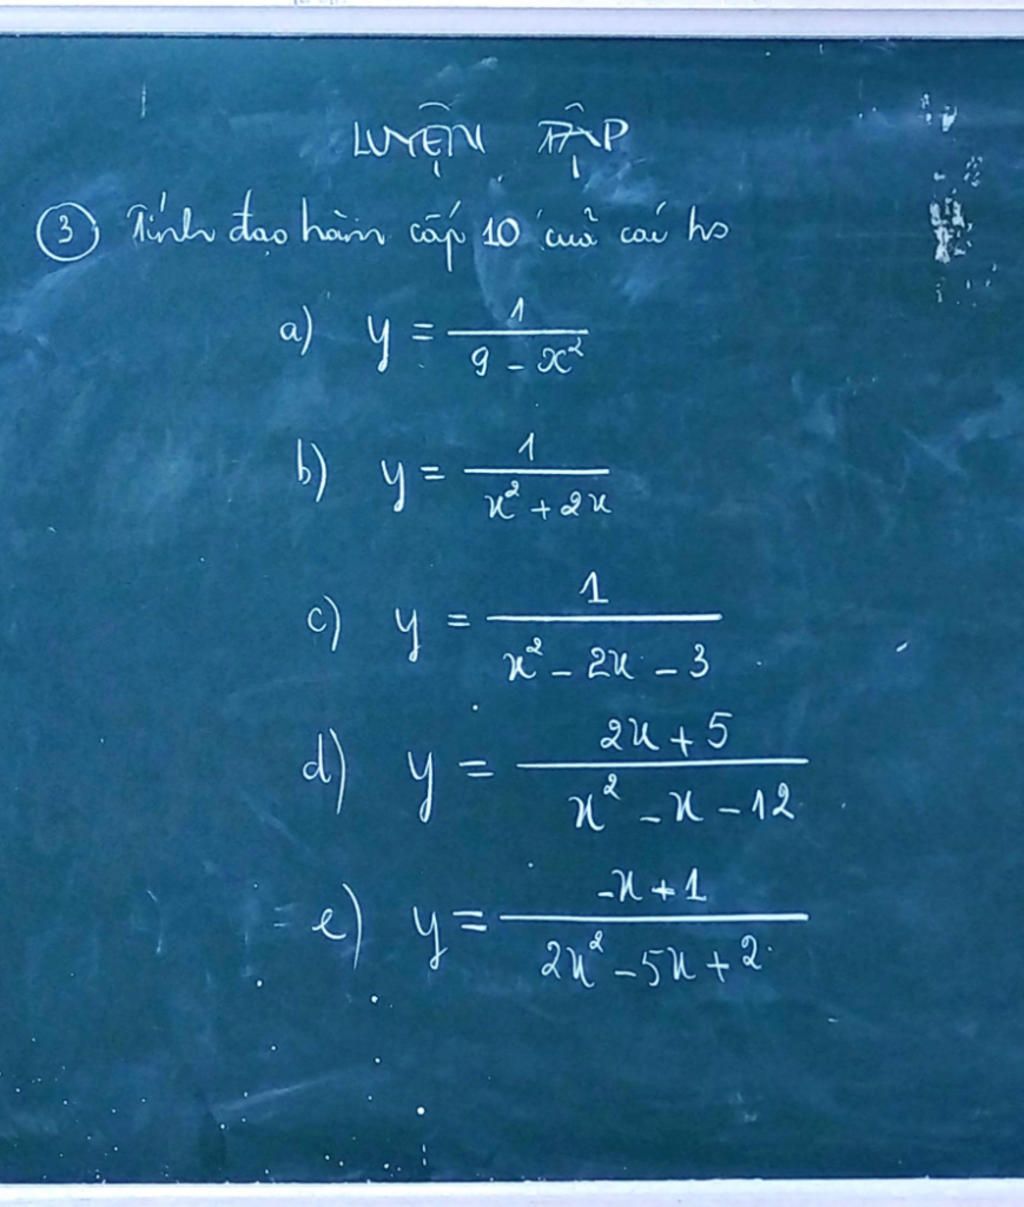 LUYỆN TẬP
③ Tính đạo hàm cấp 10 của các hs
a) y = 1 / (9 - x²)
b) y = 1 / (x² + 2x)
c) y = 1 / (x² - 2x - 3)
d) y = (2x + 5) / (x² - x - 12)
e) y = (-x + 1) / (2x² - 5x + 2)